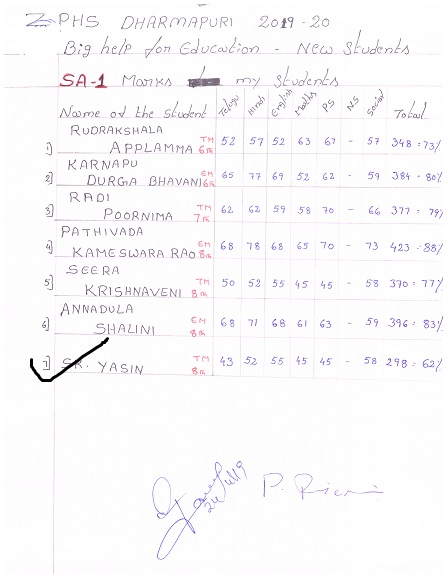 ZPHS DHARMAPURI 2019-20
Big help for Education - New Students
SA-1 Marks my Students
Name of the Student Telugu Hindi English Maths PS NS Social Total
1) RUDRAKSHALA
APPLAMMA TM 6th 52 57 52 63 67 - 57 348 = 73%
2) KARNAPU
DURGA BHAVANI EM 6th 65 77 69 52 62 - 59 384 - 80%
3) RADI
POORNIMA TM 7th 62 62 59 58 70 - 66 377 = 79%
4) PATHIVADA
KAMESWARA RAO EM 8th 68 78 68 65 70 - 73 423 = 88%
5) SEERA
KRISHNAVENI TM 8th 50 52 55 45 45 - 58 370 = 77%
6) ANNADULA
SHALINI EM 8th 68 71 68 61 63 - 59 396 = 83%
7) SK. YASIN TM 8th 43 52 55 45 45 - 58 298 = 62%
P.